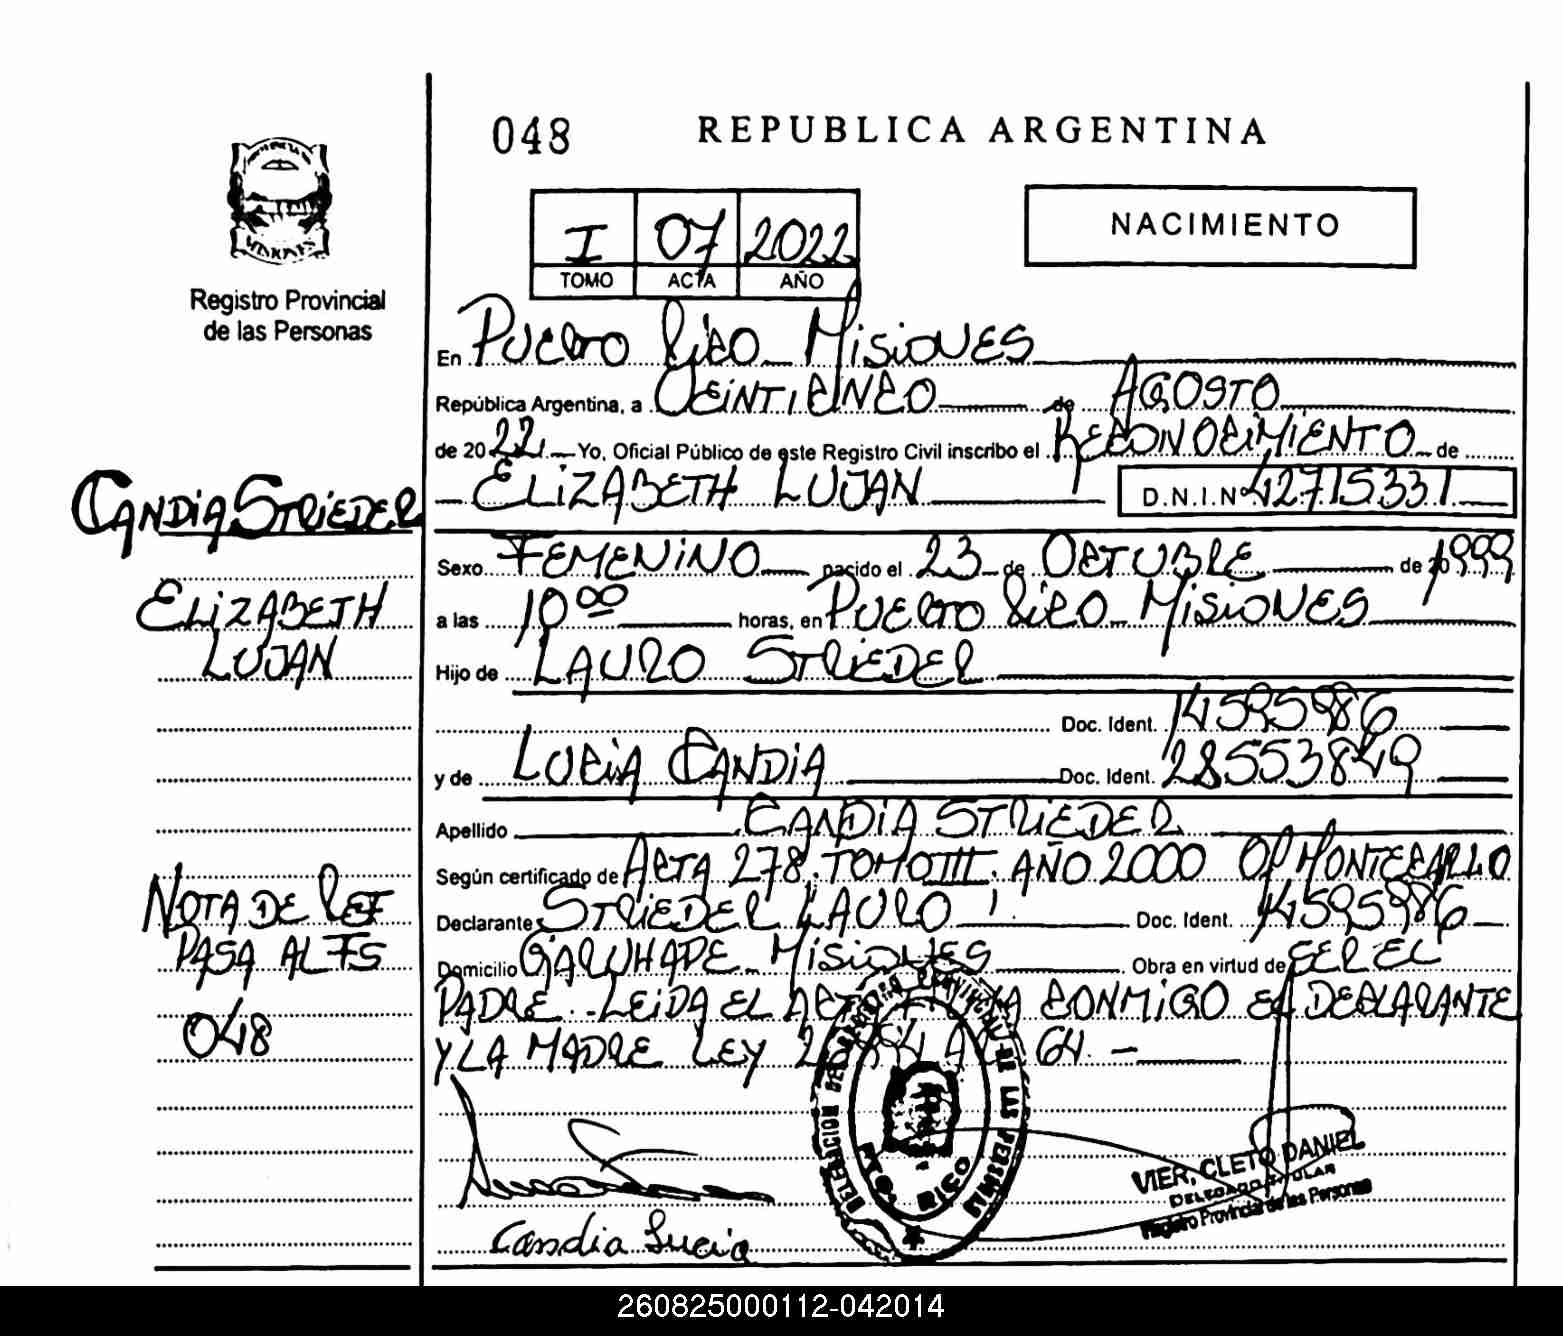 048 REPUBLICA ARGENTINA
I 07 2022
TOMO ACTA AÑO
NACIMIENTO
Registro Provincial
de las Personas
En PUERTO RICO MISIONES
República Argentina, a VEINTICINCO de AGOSTO
de 2022 Yo, Oficial Público de este Registro Civil inscribo el RECONOCIMIENTO de
ELIZABETH LUJAN D.N.I.Nº 42715331
CANDIA STRIEDER
ELIZABETH
LUJAN
Sexo FEMENINO nacido el 23 de OCTUBRE de 1999
a las 10 00 horas, en PUERTO RICO MISIONES
Hijo de LAURO STRIEDER
Doc. Ident. 14595986
y de LUCIA CANDIA Doc. Ident. 28553849
Apellido CANDIA STRIEDER
Según certificado de ACTA 278. TOMO III. AÑO 2000 OP MONTECARLO
Declarante STRIEDER LAURO Doc. Ident. 14595986
Domicilio GARUHAPE MISIONES Obra en virtud de SER EL
PADRE. LEIDA EL ACTA FIRMA CONMIGO EL DECLARANTE
Y LA MADRE LEY 64.
NOTA DE REF
PASA AL FS
048
Candia Lucia
DELEGACION DEL REGISTRO PROVINCIAL DE LAS PERSONAS
PTO. RICO
VIER, CLETO DANIEL
DELEGADO TITULAR
Registro Provincial de las Personas
260825000112-042014